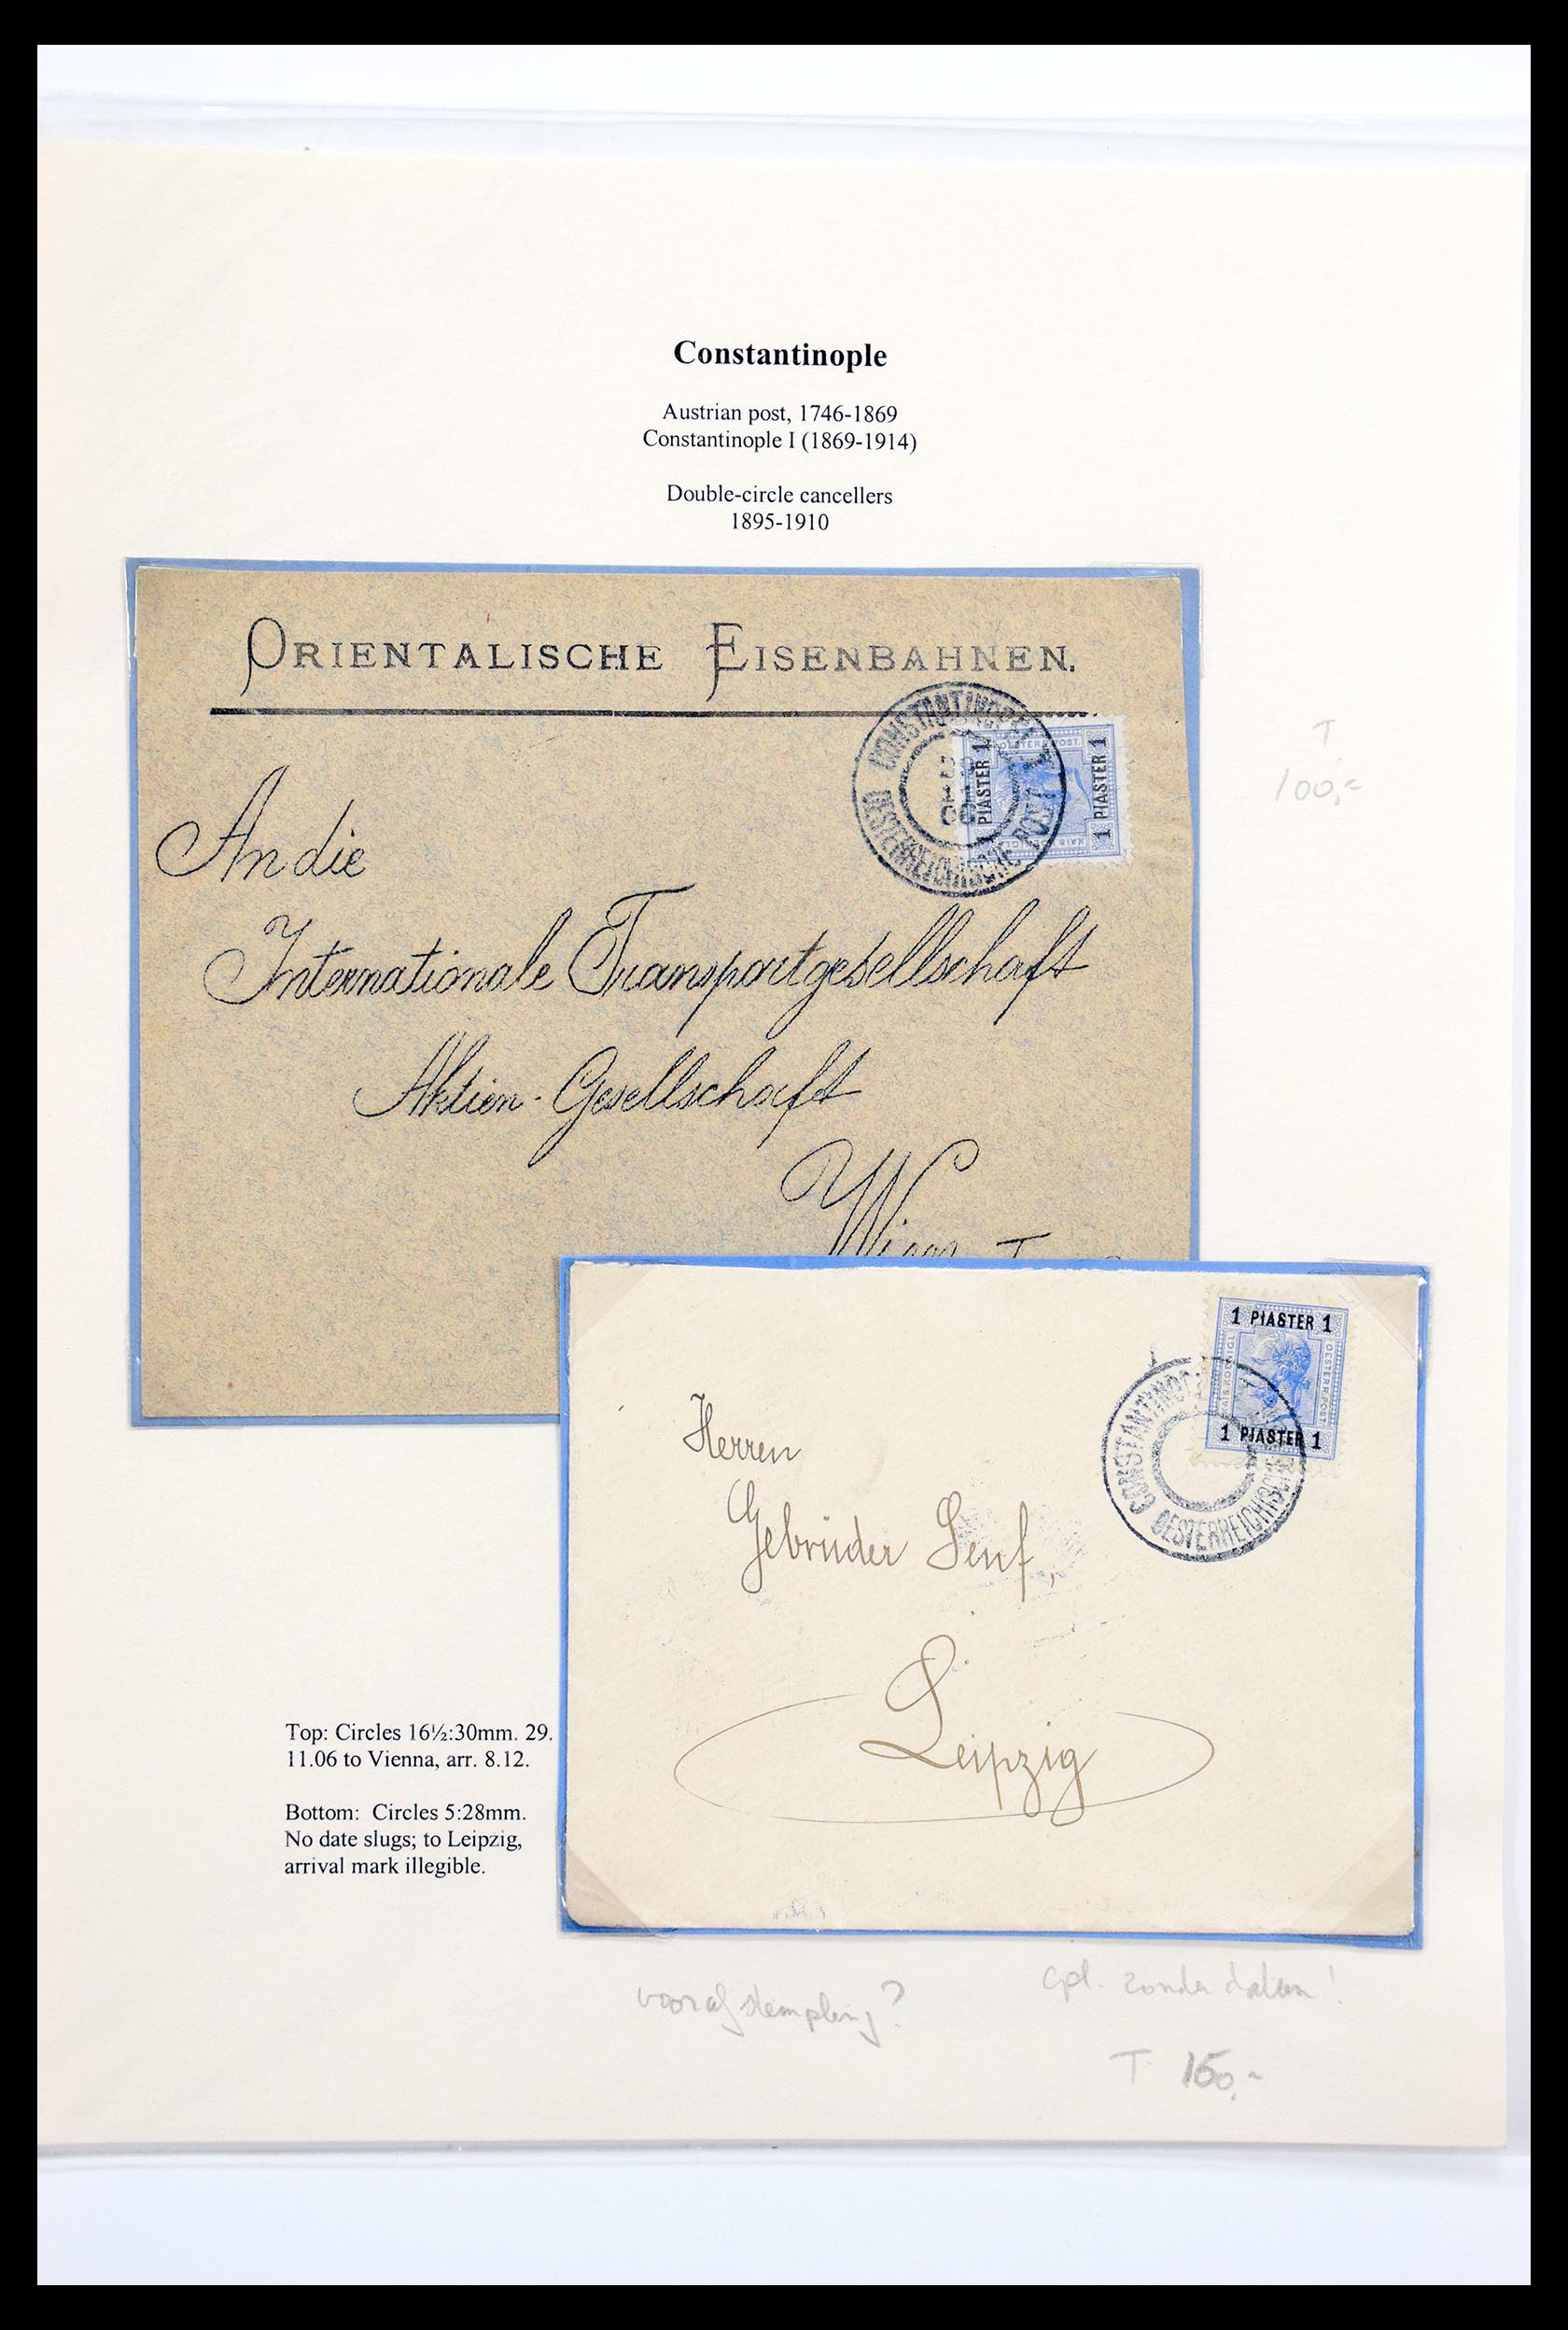 Constantinople
Austrian post, 1746-1869
Constantinople I (1869-1914)
Double-circle cancellers
1895-1910
ORIENTALISCHE EISENBAHNEN.
CONSTANTINOPEL
OESTERREICHISCHE POST
1 PIASTER 1
1 PIASTER 1
T
100,-
An die
Internationale Transportgesellschaft
Aktien-Gesellschaft
Wien
1 PIASTER 1
OESTERR.POST.
KAIS.KOENIGL.
1 PIASTER 1
CONSTANTINOP
OESTERREICHISCHE
Herren
Gebrüder Senf,
Leipzig
Top: Circles 16½:30mm. 29.
11.06 to Vienna, arr. 8.12.
Bottom: Circles 5:28mm.
No date slugs; to Leipzig,
arrival mark illegible.
voorafstempeling?
cpl. zonder datum!
T 150,-